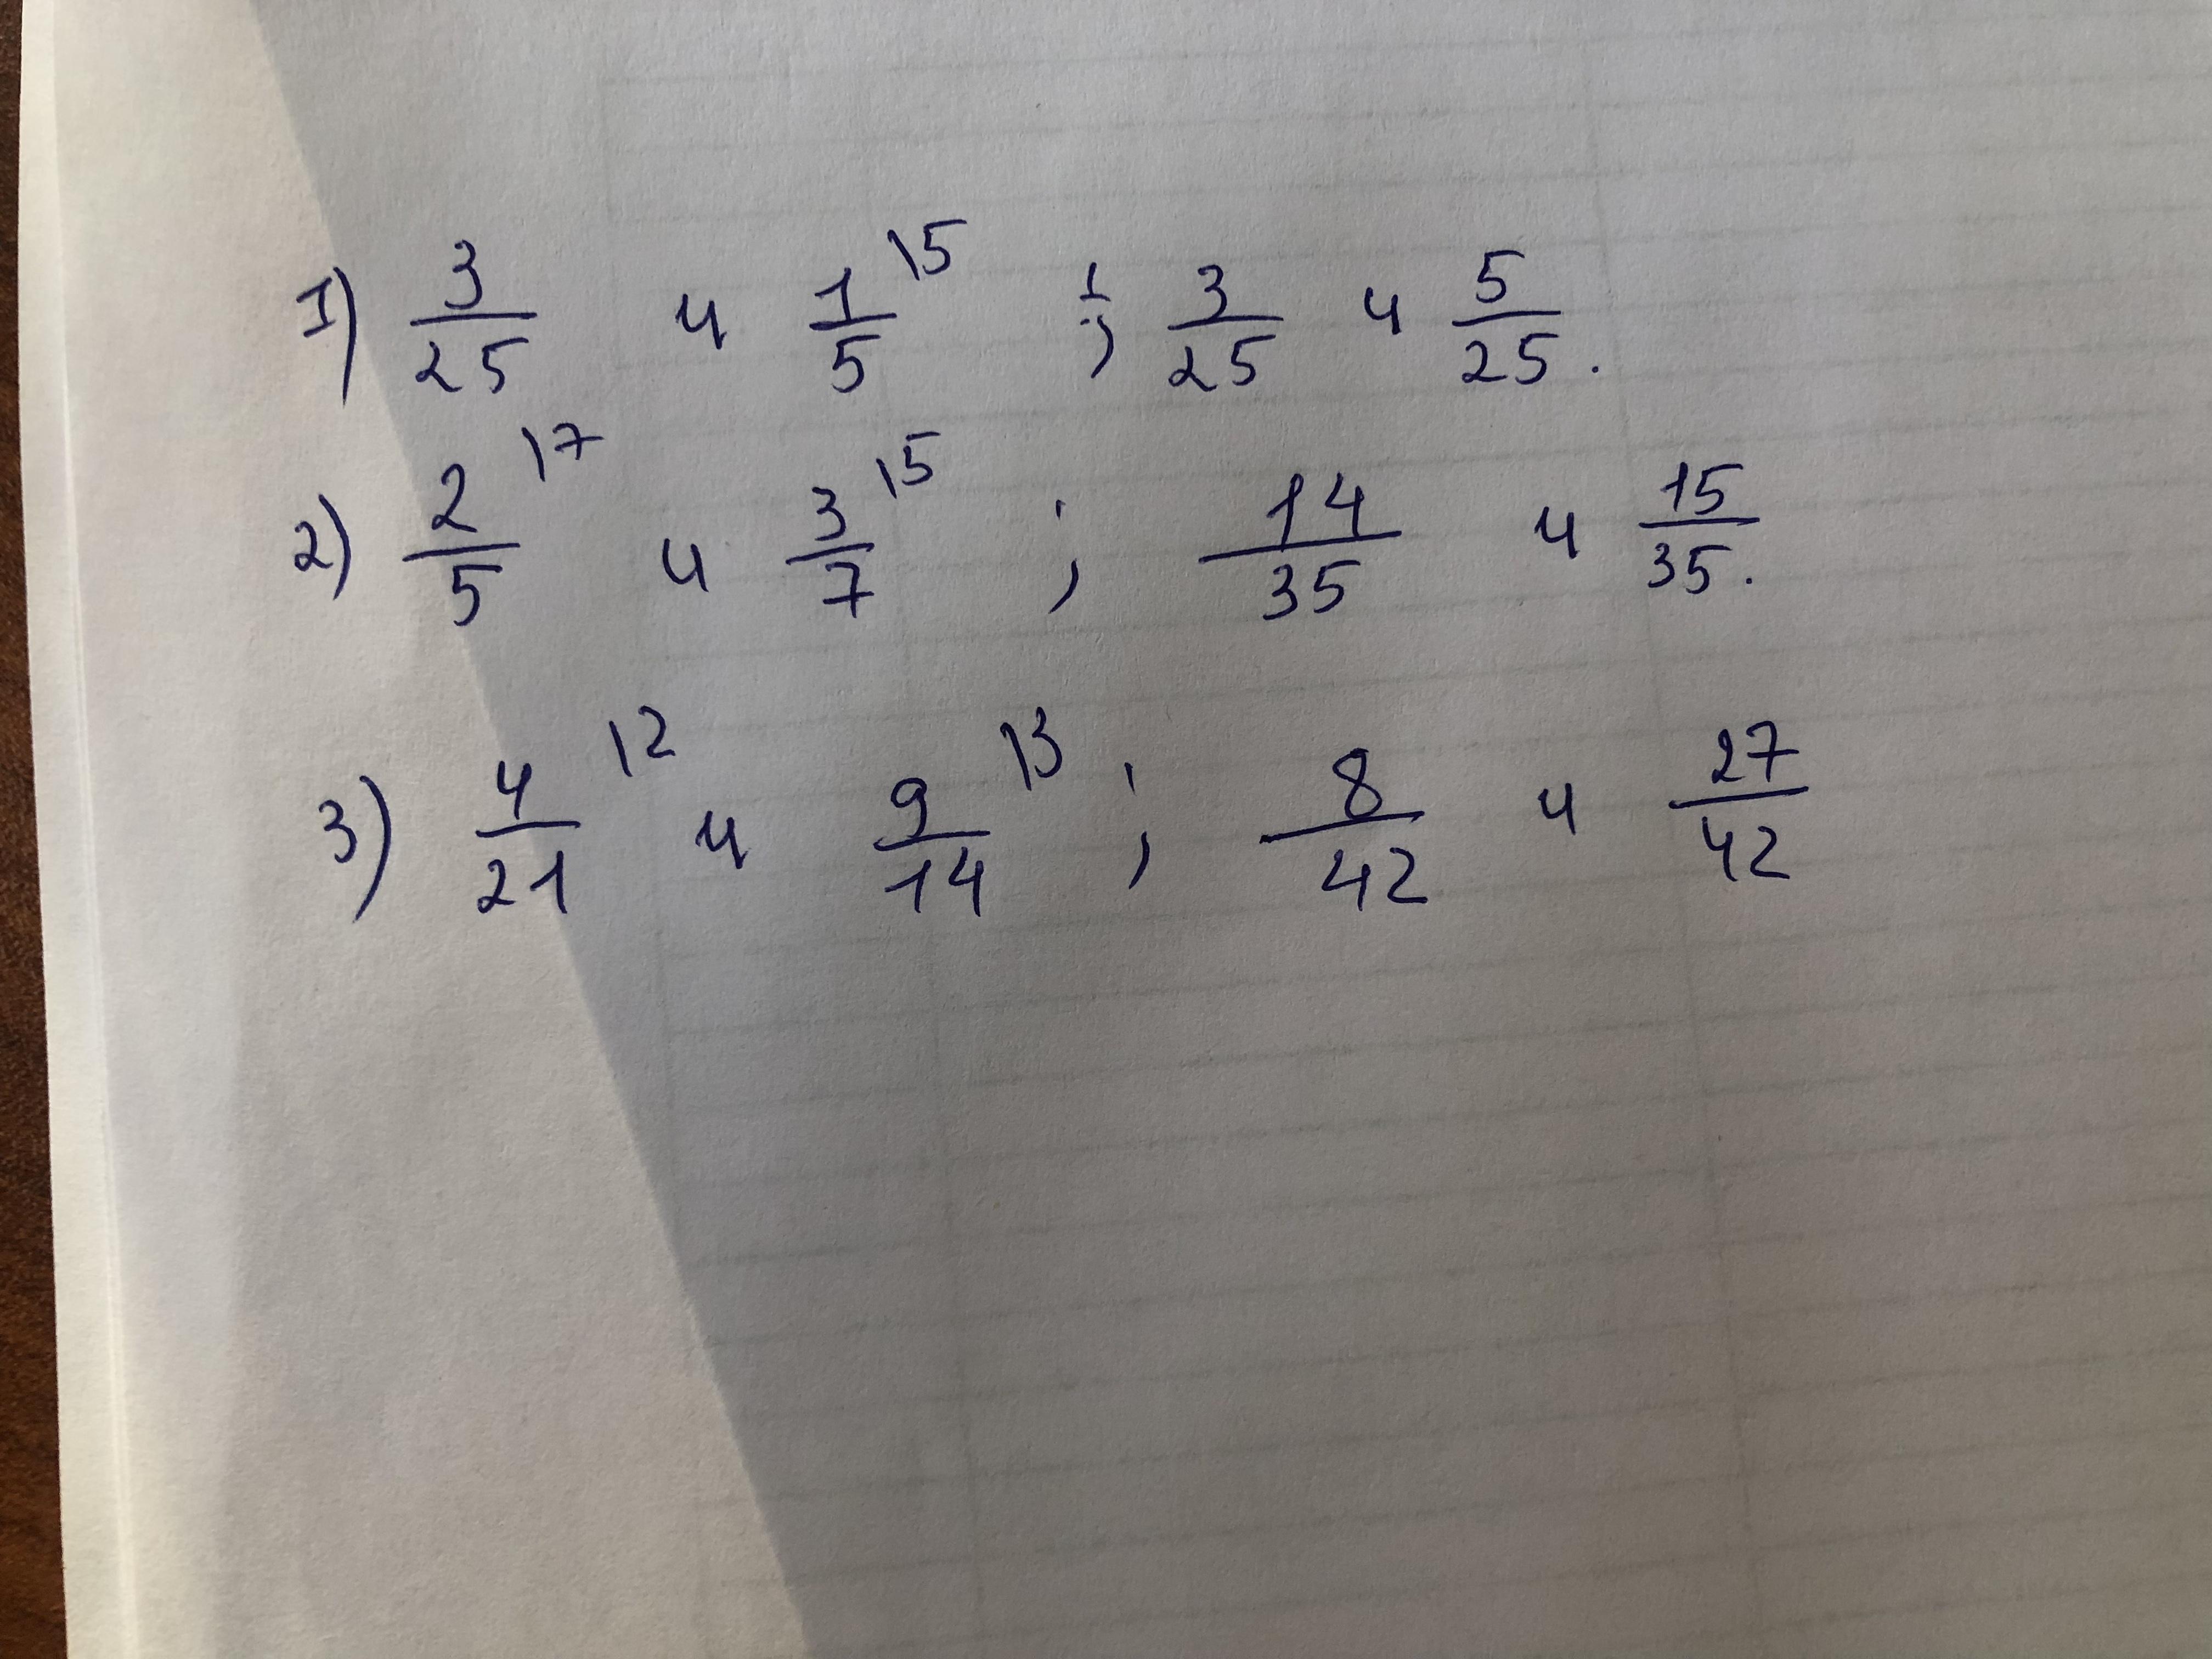 1) 3/25 и 1/5 \5 ; 3/25 и 5/25.
2) 2/5 \7 и 3/7 \5 ; 14/35 и 15/35.
3) 4/21 \2 и 9/14 \3 ; 8/42 и 27/42